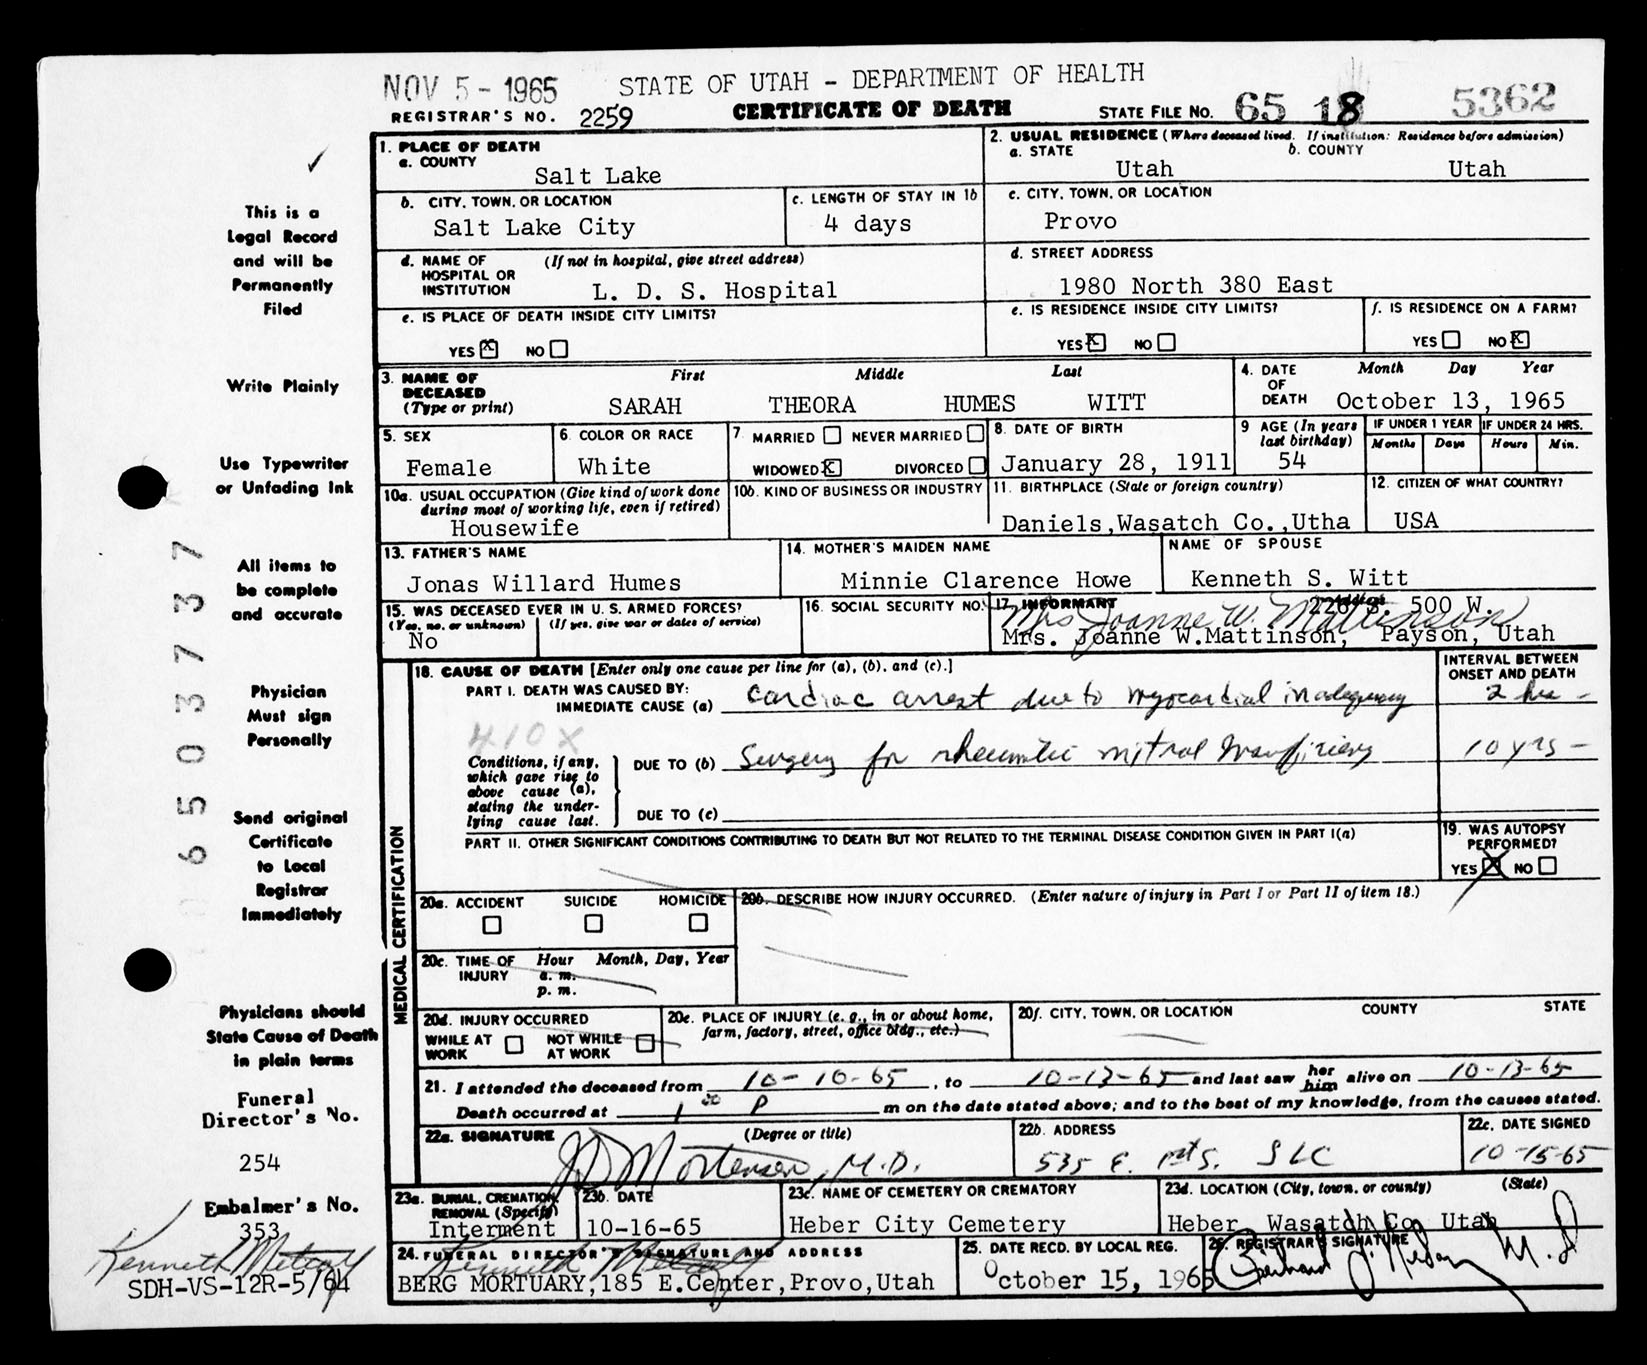 NOV 5 - 1965 STATE OF UTAH - DEPARTMENT OF HEALTH
REGISTRAR'S NO. 2259 CERTIFICATE OF DEATH STATE FILE NO. 65 18 5362
1. PLACE OF DEATH
a. COUNTY
Salt Lake
2. USUAL RESIDENCE (Where deceased lived. If institution: Residence before admission)
a. STATE b. COUNTY
Utah Utah
b. CITY, TOWN, OR LOCATION
Salt Lake City
c. LENGTH OF STAY IN 1b
4 days
c. CITY, TOWN, OR LOCATION
Provo
d. NAME OF (If not in hospital, give street address)
HOSPITAL OR
INSTITUTION L. D. S. Hospital
d. STREET ADDRESS
1980 North 380 East
e. IS PLACE OF DEATH INSIDE CITY LIMITS?
YES X NO
e. IS RESIDENCE INSIDE CITY LIMITS?
YES X NO
f. IS RESIDENCE ON A FARM?
YES NO X
3. NAME OF First Middle Last
DECEASED
(Type or print) SARAH THEORA HUMES WITT
4. DATE Month Day Year
OF
DEATH October 13, 1965
5. SEX
Female
6. COLOR OR RACE
White
7. MARRIED NEVER MARRIED
WIDOWED X DIVORCED
8. DATE OF BIRTH
January 28, 1911
9 AGE (In years
last birthday)
54
IF UNDER 1 YEAR IF UNDER 24 HRS.
Months Days Hours Min.
10a. USUAL OCCUPATION (Give kind of work done
during most of working life, even if retired)
Housewife
10b. KIND OF BUSINESS OR INDUSTRY
11. BIRTHPLACE (State or foreign country)
Daniels,Wasatch Co.,Utha
12. CITIZEN OF WHAT COUNTRY?
USA
13. FATHER'S NAME
Jonas Willard Humes
14. MOTHER'S MAIDEN NAME
Minnie Clarence Howe
NAME OF SPOUSE
Kenneth S. Witt
15. WAS DECEASED EVER IN U. S. ARMED FORCES?
(Yes, no, or unknown) (If yes, give war or dates of service)
No
16. SOCIAL SECURITY NO.
17. INFORMANT 226 S. 500 W.
Mrs Joanne W. Mattinson
Mrs. Joanne W.Mattinson, Payson, Utah
18. CAUSE OF DEATH [Enter only one cause per line for (a), (b), and (c).]
INTERVAL BETWEEN
ONSET AND DEATH
PART I. DEATH WAS CAUSED BY:
IMMEDIATE CAUSE (a) Cardiac arrest due to myocardial inadequacy 2 hrs -
410X
Conditions, if any,
which gave rise to
above cause (a),
stating the under-
lying cause last.
DUE TO (b) Surgery for rheumatic mitral insufficiency 10 yrs -
DUE TO (c)
PART II. OTHER SIGNIFICANT CONDITIONS CONTRIBUTING TO DEATH BUT NOT RELATED TO THE TERMINAL DISEASE CONDITION GIVEN IN PART I(a)
19. WAS AUTOPSY
PERFORMED?
YES X NO
20a. ACCIDENT SUICIDE HOMICIDE
20b. DESCRIBE HOW INJURY OCCURRED. (Enter nature of injury in Part I or Part II of item 18.)
20c. TIME OF Hour Month, Day, Year
INJURY a. m.
p. m.
20d. INJURY OCCURRED
WHILE AT NOT WHILE
WORK AT WORK
20e. PLACE OF INJURY (e. g., in or about home,
farm, factory, street, office bldg., etc.)
20f. CITY, TOWN, OR LOCATION COUNTY STATE
21. I attended the deceased from 10-10-65, to 10-13-65 and last saw her him alive on 10-13-65
Death occurred at 1 20 P m on the date stated above; and to the best of my knowledge, from the causes stated.
22a. SIGNATURE (Degree or title)
JD Mortensen, M.D.
22b. ADDRESS
535 E. 1st S. SLC
22c. DATE SIGNED
10-15-65
23a. BURIAL, CREMATION,
REMOVAL (Specify)
Interment
23b. DATE
10-16-65
23c. NAME OF CEMETERY OR CREMATORY
Heber City Cemetery
23d. LOCATION (City, town, or county) (State)
Heber, Wasatch Co. Utah
24. FUNERAL DIRECTOR'S SIGNATURE AND ADDRESS
Kenneth Metcalf
BERG MORTUARY,185 E.Center,Provo,Utah
25. DATE RECD. BY LOCAL REG.
October 15, 1965
26. REGISTRAR'S SIGNATURE
M.D
This is a
Legal Record
and will be
Permanently
Filed
Write Plainly
Use Typewriter
or Unfading Ink
All items to
be complete
and accurate
Physician
Must sign
Personally
Send original
Certificate
to Local
Registrar
Immediately
Physicians should
State Cause of Death
in plain terms
Funeral
Director's No.
254
Embalmer's No.
353
Kenneth Metcalf
SDH-VS-12R-5/64
0 6 5 0 3 7 3 7
MEDICAL CERTIFICATION